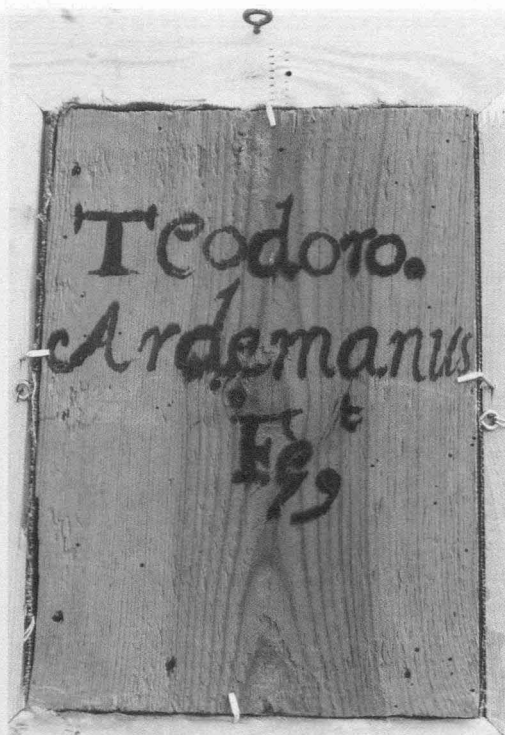 Teodoro.
Ardemanus
Fe,t